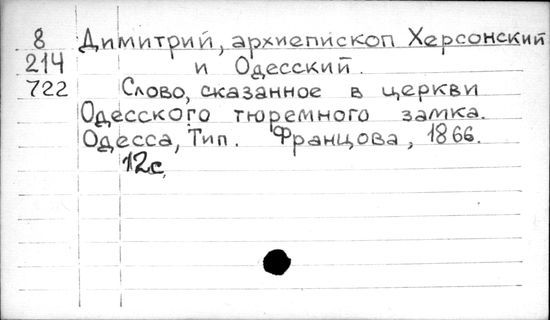 8 Димитрий, архиепископ Херсонский
214 и Одесский.
722 Слово, сказанное в церкви
Одесского тюремного замка.
Одесса, Тип. Францова, 1866.
12с.